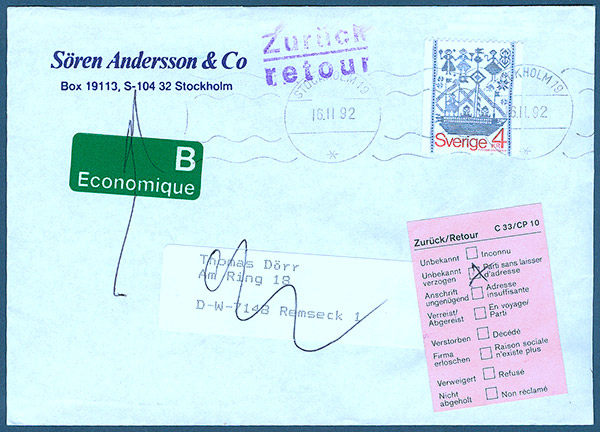 Sören Andersson & Co
Box 19113, S-104 32 Stockholm
Zurück
retour
STOCKHOLM 19
16.11.92
Sverige 4
STOCKHOLM 19
16.11.92
B
Economique
Thomas Dörr
Am Ring 18
D-W-7148 Remseck 1
Zurück/Retour C 33/CP 10
Unbekannt Inconnu
Unbekannt verzogen Parti sans laisser d'adresse
Anschrift ungenügend Adresse insuffisante
Verreist/ Abgereist En voyage/ Parti
Verstorben Décédé
Firma erloschen Raison sociale n'existe plus
Verweigert Refusé
Nicht abgeholt Non réclamé